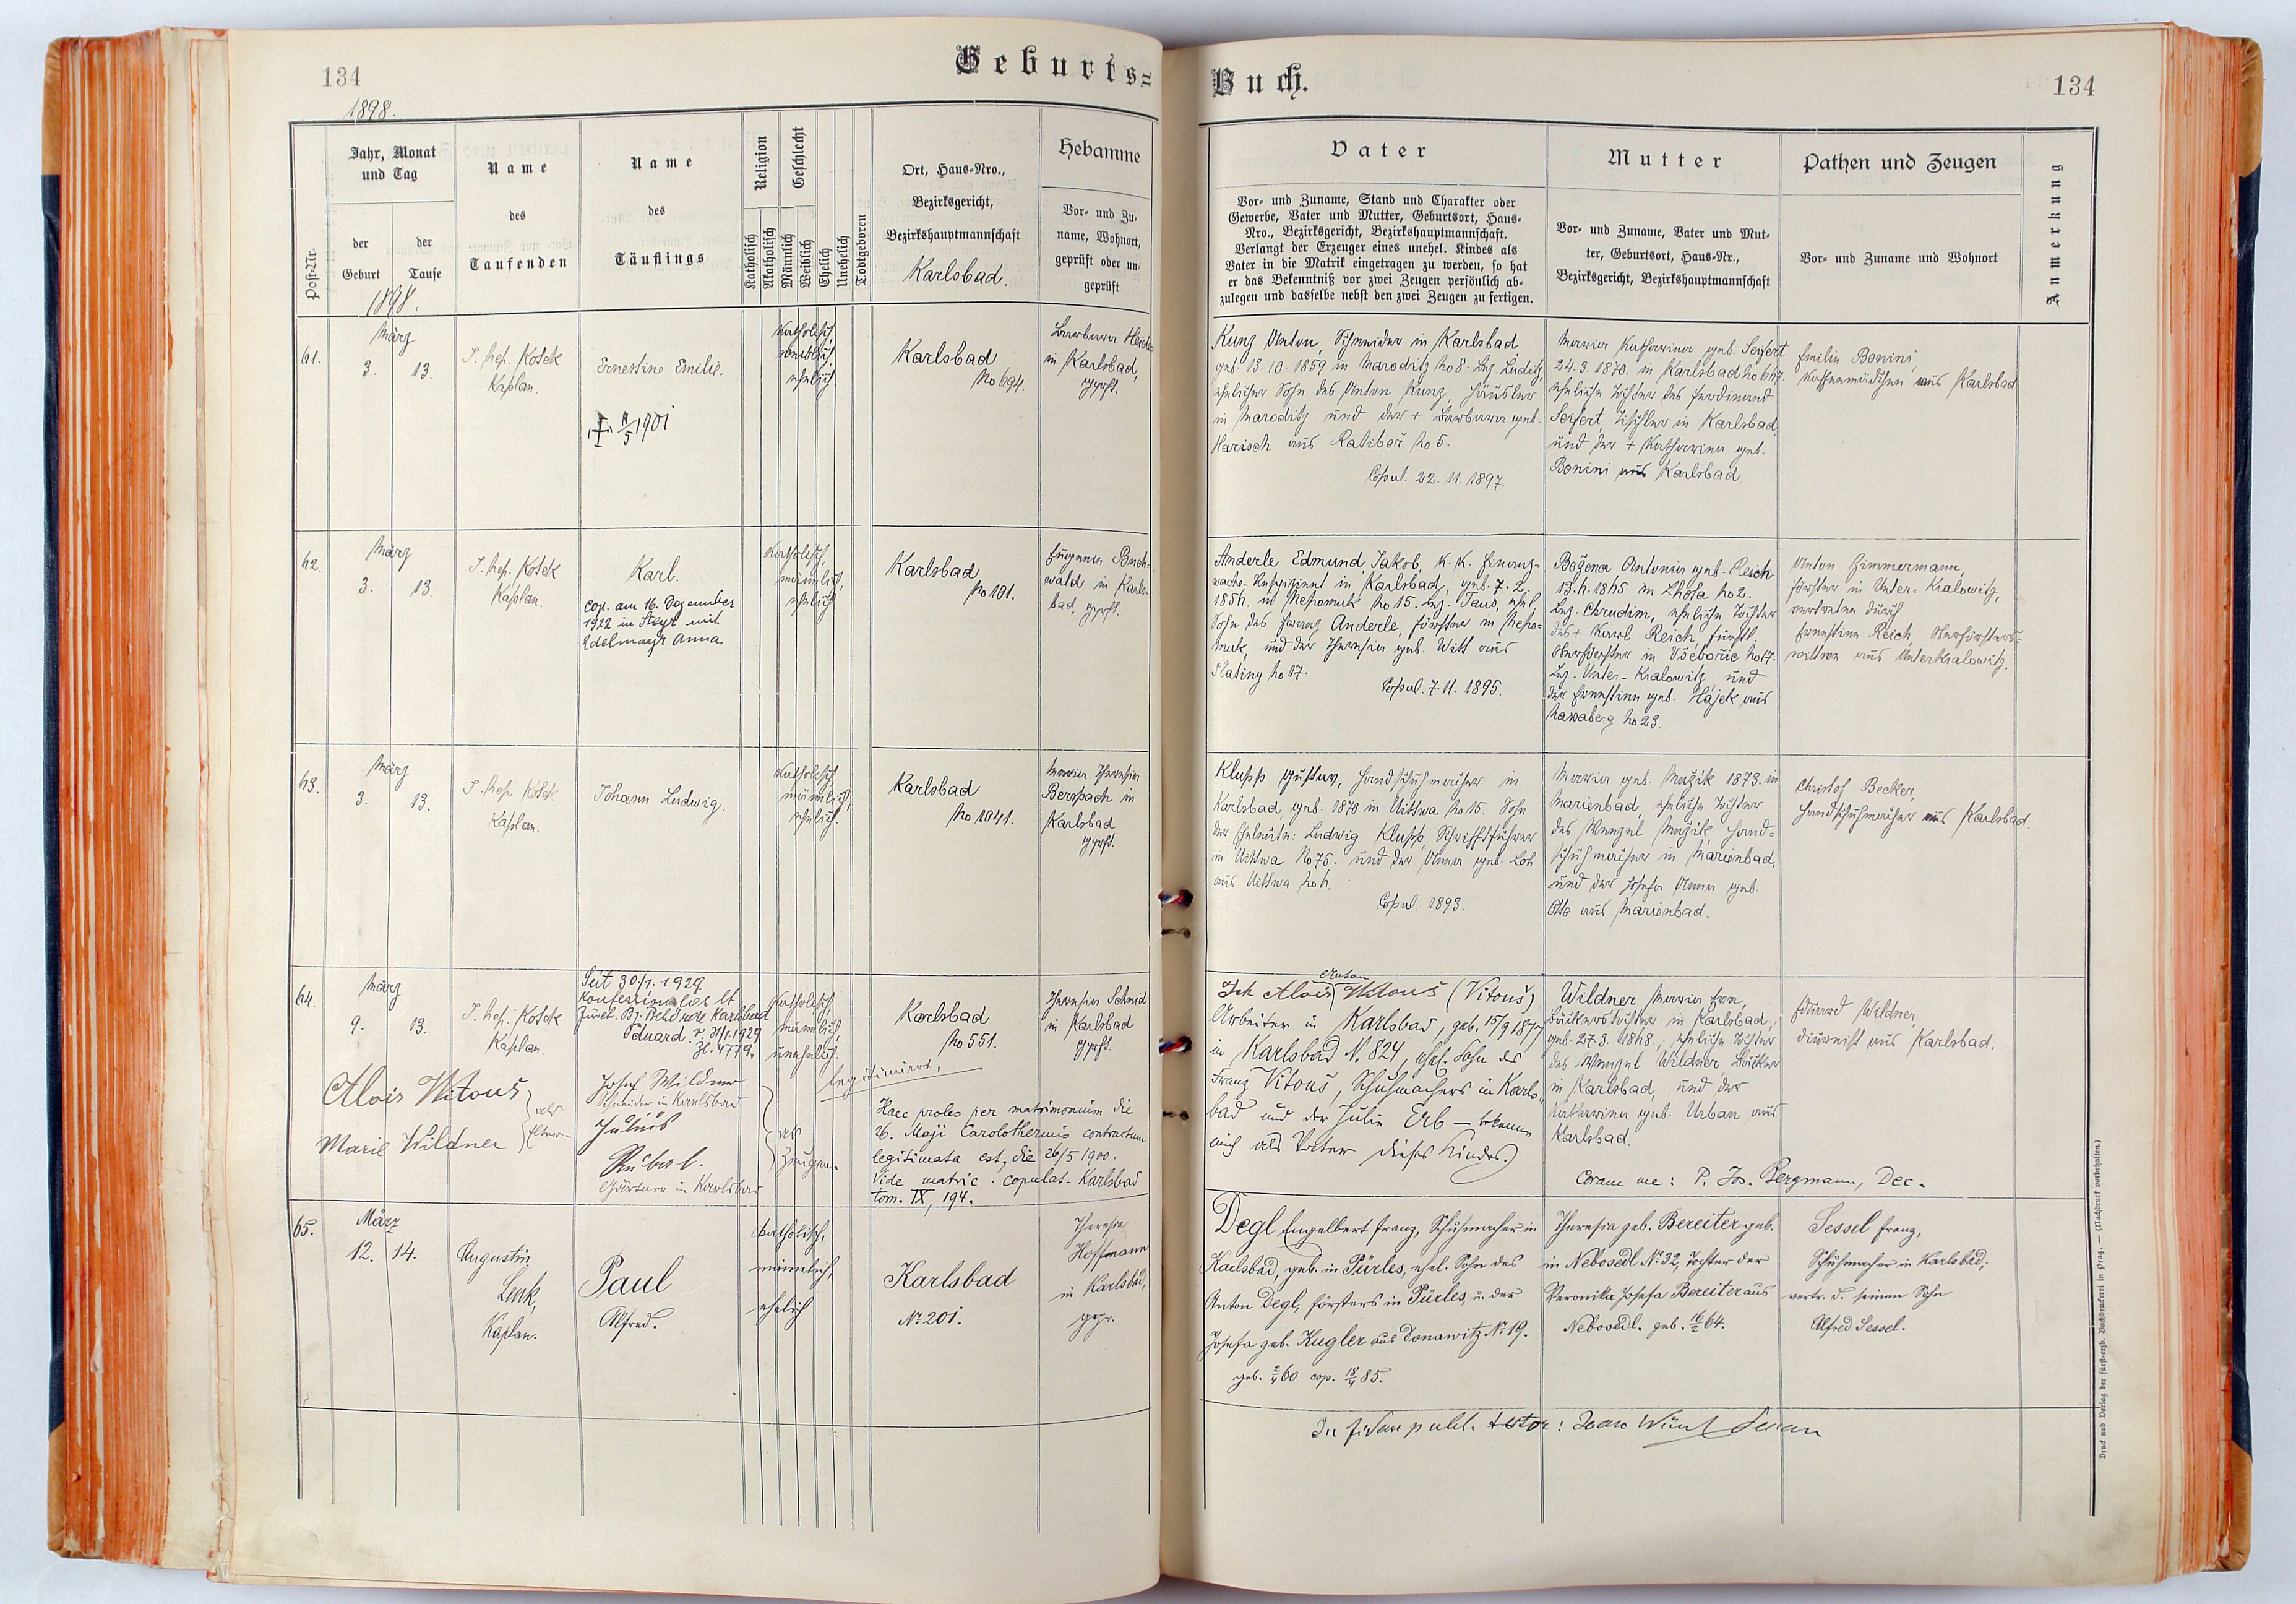 134
Geburts=
1898.
Post-Nr.
Jahr, Monat
und Tag
der
Geburt
der
Taufe
1898.
Name
des
Taufenden
Name
des
Täuflings
Religion
Katholisch
Akatholisch
Geschlecht
Männlich
Weiblich
Ehelich
Unehelich
Todtgeboren
Ort, Haus-Nro.,
Bezirksgericht,
Bezirkshauptmannschaft
Karlsbad.
Hebamme
Vor- und Zu-
name, Wohnort,
geprüft oder un-
geprüft
61.
März
3. 13.
J. Nep. Kosek
Kaplan.
Ernestine Emilie.
† 11/5 1901
Katholisch
weiblich
ehelich
Karlsbad
No 694.
Barbara
in Karlsbad,
gprft.
62.
März
3. 13.
J. Nep. Kosek
Kaplan.
Karl.
cop. am 16. Dezember
1922 in Steyr mit
Edelmayr Anna.
Katholisch,
männlich,
ehelich
Karlsbad
No 101.
Eugenia Buch-
wald in Karls-
bad, gprft.
63.
März
3. 13.
J. Nep. Kosek
Kaplan.
Johann Ludwig.
Katholisch
männlich,
ehelich.
Karlsbad
No 1041.
Maria Theresia
Berspach in
Karlsbad
gprft.
64.
März
9. 13.
J. Nep. Kosek
Kaplan.
Seit 30/1. 1929
konfessionslos lt
Zusch. Bz. Behörde Karlsbad
Eduard. v. 31/1. 1929
Zl. 4779.
Katholisch,
männlich,
unehelich.
legitimiert,
Karlsbad
No 551.
Theresia Schmid
in Karlsbad
gprft.
Alois Witouš
Marie Wildner
als
Eltern
Josef Wildner
Schneider in Karlsbad
Julius
Gärtner in Karlsbad
als
Zeugen.
Haec proles per matrimonium die
26. Maji Carolothermis contractum
legitimata est, die 26/5 1900.
Vide matric. copulat. Karlsbad
tom. IX, 194.
65.
März
12. 14.
Augustin
Leak,
Kaplan.
Paul
Alfred.
katholisch,
männlich,
ehelich
Karlsbad
No. 201.
Theresia
Hoffmann
in Karlsbad,
gepr.
Buch.
134
Vater
Vor- und Zuname, Stand und Charakter oder
Gewerbe, Vater und Mutter, Geburtsort, Haus-
Nro., Bezirksgericht, Bezirkshauptmannschaft.
Verlangt der Erzeuger eines unehel. Kindes als
Vater in die Matrik eingetragen zu werden, so hat
er das Bekenntniß vor zwei Zeugen persönlich ab-
zulegen und dasselbe nebst den zwei Zeugen zu fertigen.
Mutter
Vor- und Zuname, Vater und Mut-
ter, Geburtsort, Haus-Nr.,
Bezirksgericht, Bezirkshauptmannschaft
Pathen und Zeugen
Vor- und Zuname und Wohnort
Anmerkung
Kunz Anton, Schneider in Karlsbad
geb. 13. 10. 1859 in Maroditz No 8. Bez. Luditz,
ehelicher Sohn des Anton Kunz, Häusler
in Maroditz und der + Barbara geb.
Harisch aus Ratiboř No 5.
Copul. 22. 11. 1897.
Maria Katharina geb. Seifert
24. 3. 1870. in Karlsbad No 617.
eheliche Tochter des Ferdinand
Seifert, Tischler in Karlsbad,
und der + Katharina geb.
Bonini aus Karlsbad
Emilie Bonini,
Kassenmädchen aus Karlsbad
Anderle Edmund, Jakob, K. K. Finanz-
wache-Respizient in Karlsbad, geb. 7. 2.
1856. in Nepomuk No 15. Bez. Taus, ehel.
Sohn des Franz Anderle, Förster in Nepo-
muk, und der Theresia geb. Witt aus
Platiny No 17.
Copul. 7. 11. 1895.
Božena Antonia geb. Reich
13. 6. 1865 in Lhota No 2.
Bez. Chrudim, eheliche Tochter
des + Karl Reich, fürstl.
Oberförster in Všebořic No 17.
Bez. Unter-Kralowitz, und
der Ernestine geb. Hájek aus
No 23.
Anton Zimmermann,
Förster in Unter-Kralowitz,
vertreten durch
Ernestine Reich, Oberförsters-
witwe aus Unterkralowitz.
Klupp Gustav, Handschuhmacher in
Karlsbad, geb. 1870 in Uittwa No 15. Sohn
der Eheleute: Ludwig Klupp, Schriftführer
in Uittwa No 75. und der Anna geb. Loh
aus Uittwa No 6.
Copul. 1893.
Maria geb. Mužik 1873. in
Marienbad, eheliche Tochter
des Wenzel Mužik, Hand-
schuhmacher in Marienbad,
und der Josefa Anna geb.
Otto aus Marienbad.
Christof Becker,
Handschuhmacher aus Karlsbad.
Anton
Ich Alois Witouš (Vitouš)
Arbeiter in Karlsbad, geb. 15/9 1877
in Karlsbad N. 824, ehel. Sohn des
Franz Vitouš, Schuhmachers in Karls-
bad und der Julie Erb — bekenne
mich als Vater dieses Kindes.)
Wildner Maria Eva,
Bäckerstochter in Karlsbad,
geb. 27. 3. 1868. eheliche Tochter
des Wenzel Wildner, Bäcker
in Karlsbad, und der
Katharina geb. Urban aus
Karlsbad.
Eduard Wildner,
Diurnist aus Karlsbad.
Coram me: P. Jos. Bergmann, Dec.
Degl Engelbert Franz, Schuhmacher in
Karlsbad, geb. in Pürles, ehel. Sohn des
Anton Degl, Försters in Pürles, u. der
Josefa geb. Kugler aus Donawitz No. 19.
geb. 2/4 60 cop. 18/4 85.
Theresia geb. Bereiter geb.
in Nebosedl No. 32, Tochter der
Veronika Josefa Bereiter aus
Nebosedl. geb. 16/2 64.
Sessel Franz,
Schuhmacher in Karlsbad;
vertr. d. seinen Sohn
Alfred Sessel.
In fidem publ. testor:
Druck und Verlag der fürst-erzb. Buchdruckerei in Prag. — (Nachdruck vorbehalten.)